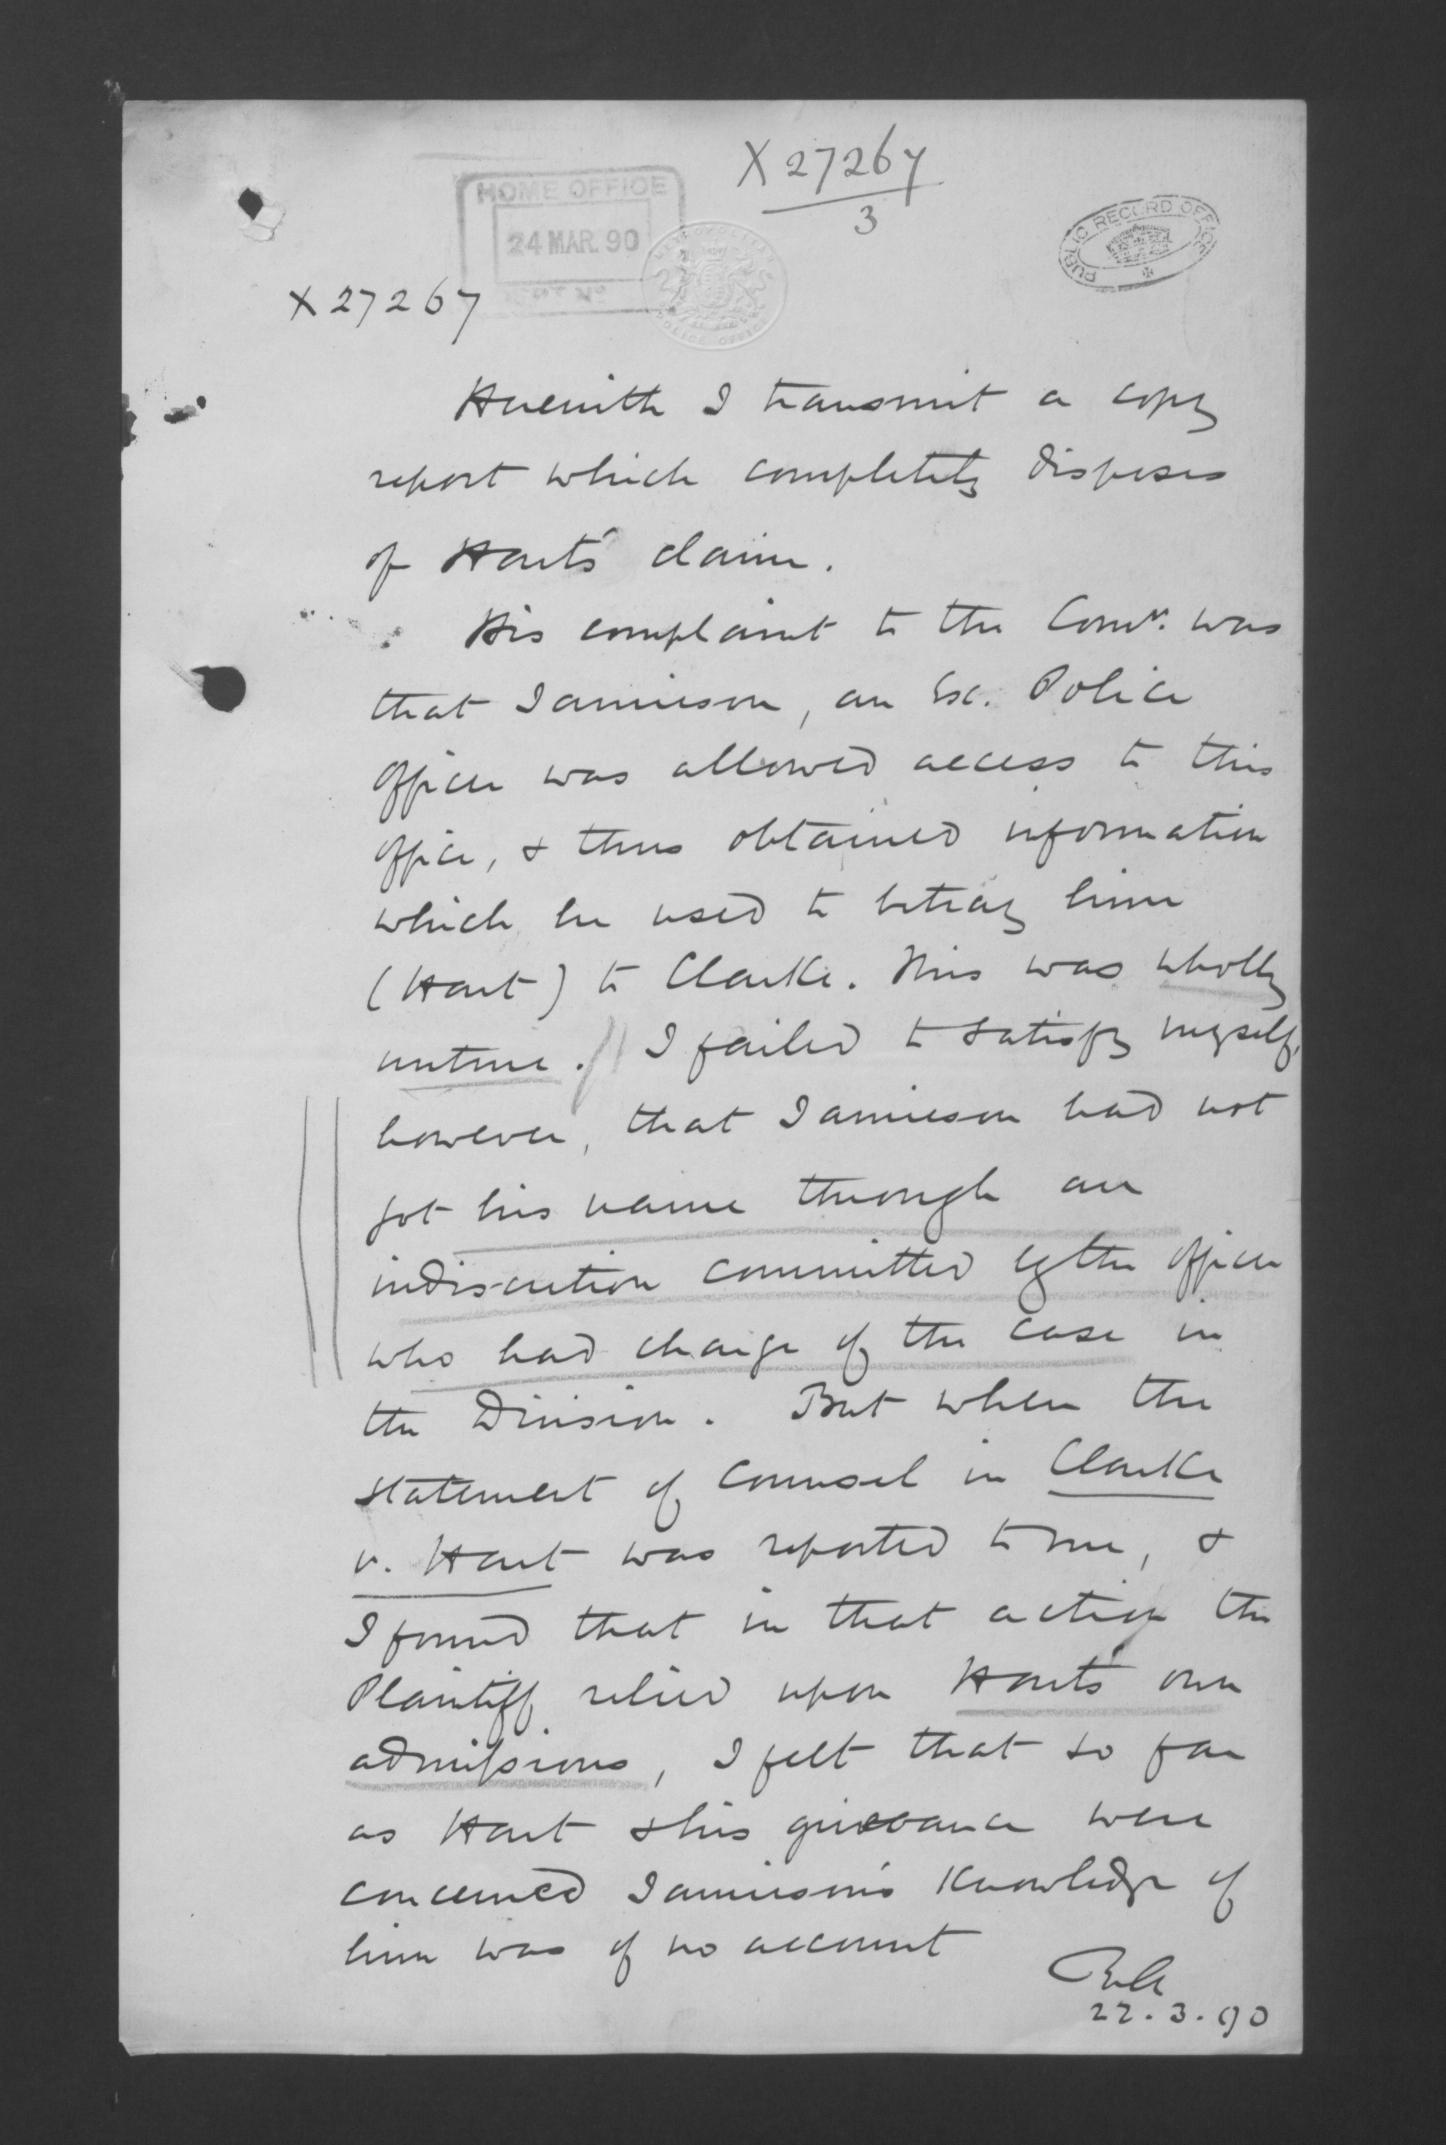 X27267
3
HOME OFFICE
24 MAR. 90
DEPT. No
METROPOLITAN
POLICE OFFICE
PUBLIC RECORD OFFICE
X27267
Herewith I transmit a copy
report which completely disposes
of Hart's claim.
His complaint to the Comr. was
that Jamieson, an Ex. Police
officer was allowed access to this
office, & thus obtained information
which he used to betray him
(Hart) to Clarke. This was wholly
untrue. // I failed to satisfy myself,
however, that Jamieson had not
got his name through an
indiscretion committed by the officer
who had charge of the case in
the Division. But when the
statement of Counsel in Clarke
v. Hart was reported to me, &
I found that in that action the
Plaintiff relied upon Hart's own
admissions, I felt that so far
as Hart & his grievance were
concerned Jamieson's knowledge of
him was of no account
RA
22.3.90